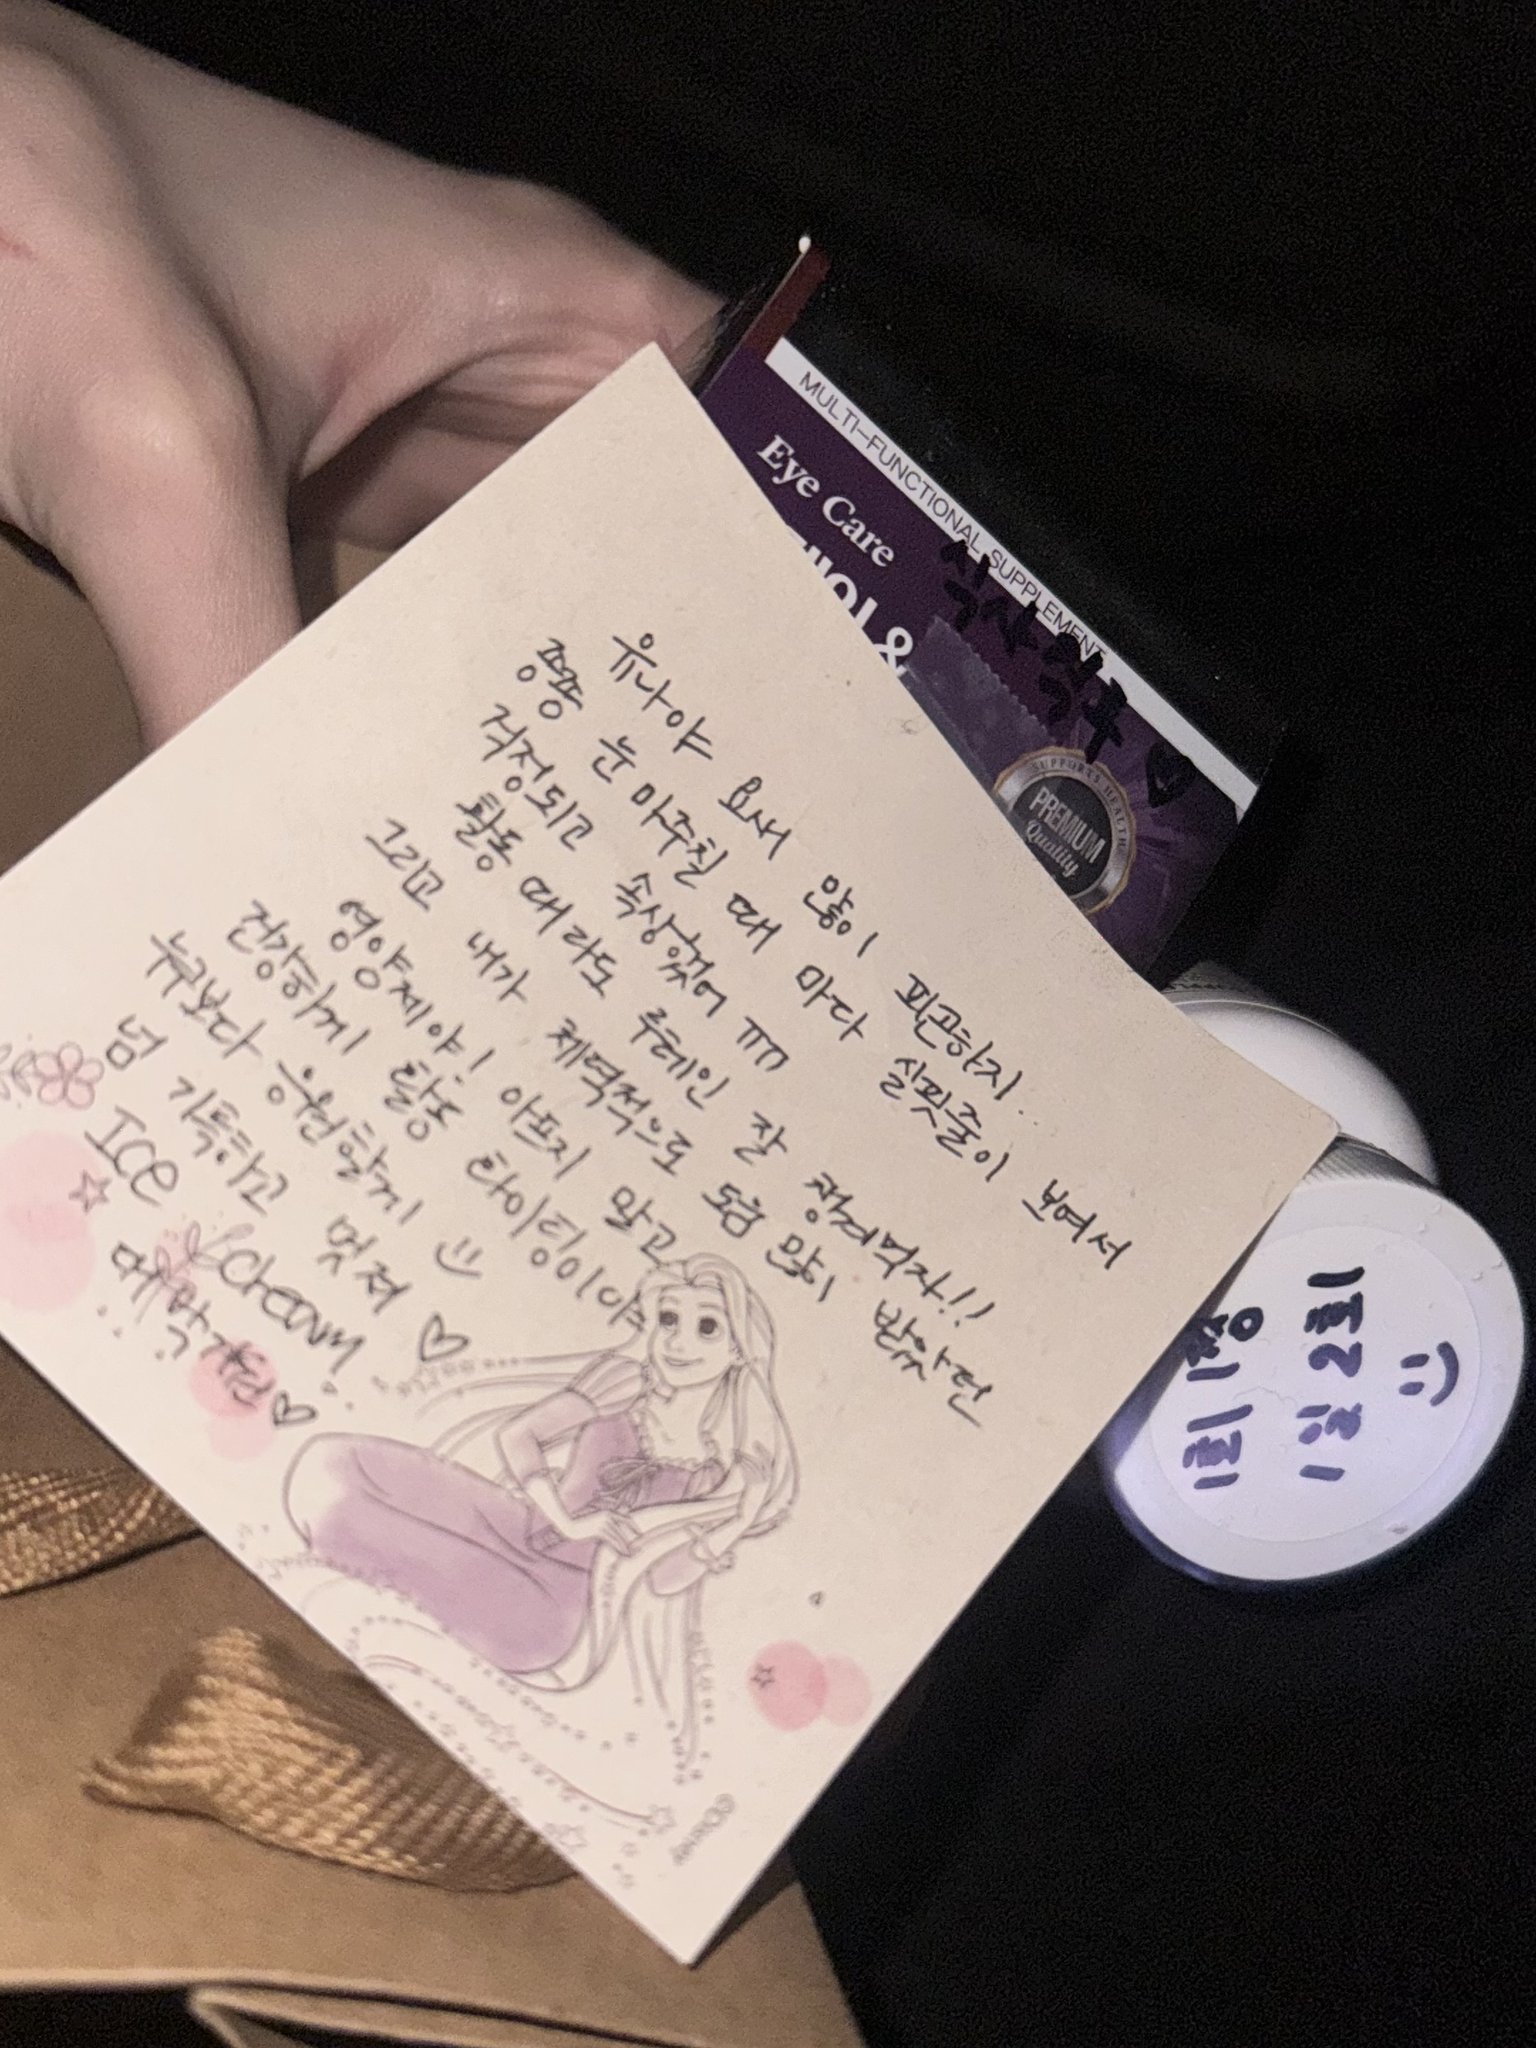 유나야 요새 많이 피곤하지.
쫑쫑 눈 마주칠 때 마다 실핏줄이 보여서
걱정되고 속상했어 ㅠㅠ
활동 때라도 루테인 잘 챙겨먹자!!
그리고 내가 체력적으로 도움 많이 받았던
영양제야! 아프지 말고
건강하게 활동 화이팅이야
누구보다 응원할게 :)
넘 기특하고 멋져 ♡
ICE CREAM
©Disney
MULTI-FUNCTIONAL SUPPLEMENT
Eye Care
&
식사 직후 ♡
SUPPORTS HEALTH
PREMIUM
Quality
1회 1정
1일 2회
:)